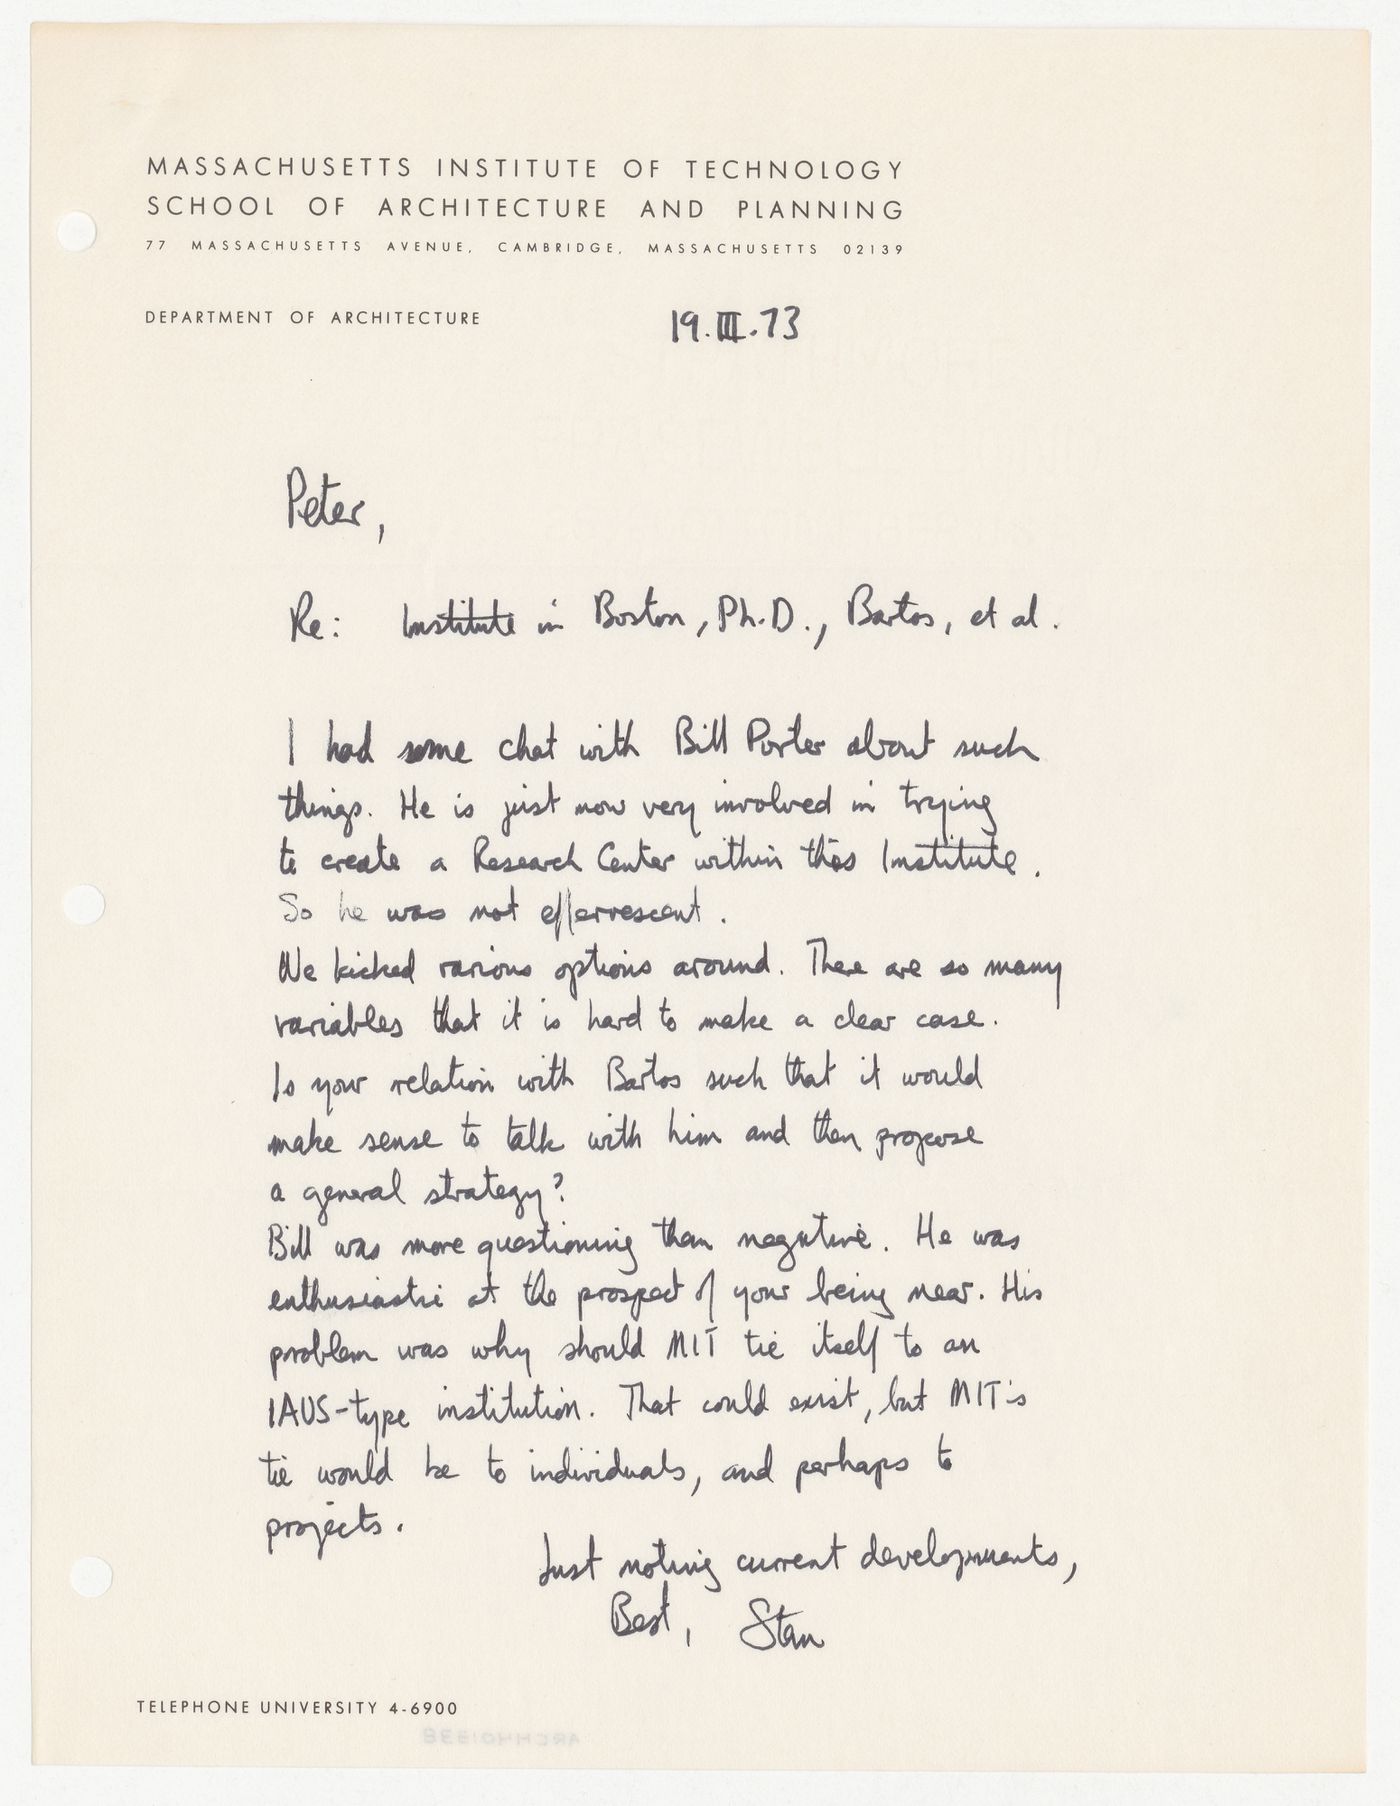 MASSACHUSETTS INSTITUTE OF TECHNOLOGY
SCHOOL OF ARCHITECTURE AND PLANNING
77 MASSACHUSETTS AVENUE, CAMBRIDGE, MASSACHUSETTS 02139
DEPARTMENT OF ARCHITECTURE
19.III.73
Peter,
Re: Institute in Boston, Ph.D., Bartos, et al.
I had some chat with Bill Porter about such
things. He is just now very involved in trying
to create a Research Center within this Institute.
So he was not effervescent.
We kicked various options around. There are so many
variables that it is hard to make a clear case.
Is your relation with Bartos such that it would
make sense to talk with him and then propose
a general strategy?
Bill was more questioning than negative. He was
enthusiastic at the prospect of your being near. His
problem was why should MIT tie itself to an
IAUS-type institution. That could exist, but MIT's
tie would be to individuals, and perhaps to
projects.
Just noting current developments,
Best, Stan
TELEPHONE UNIVERSITY 4-6900